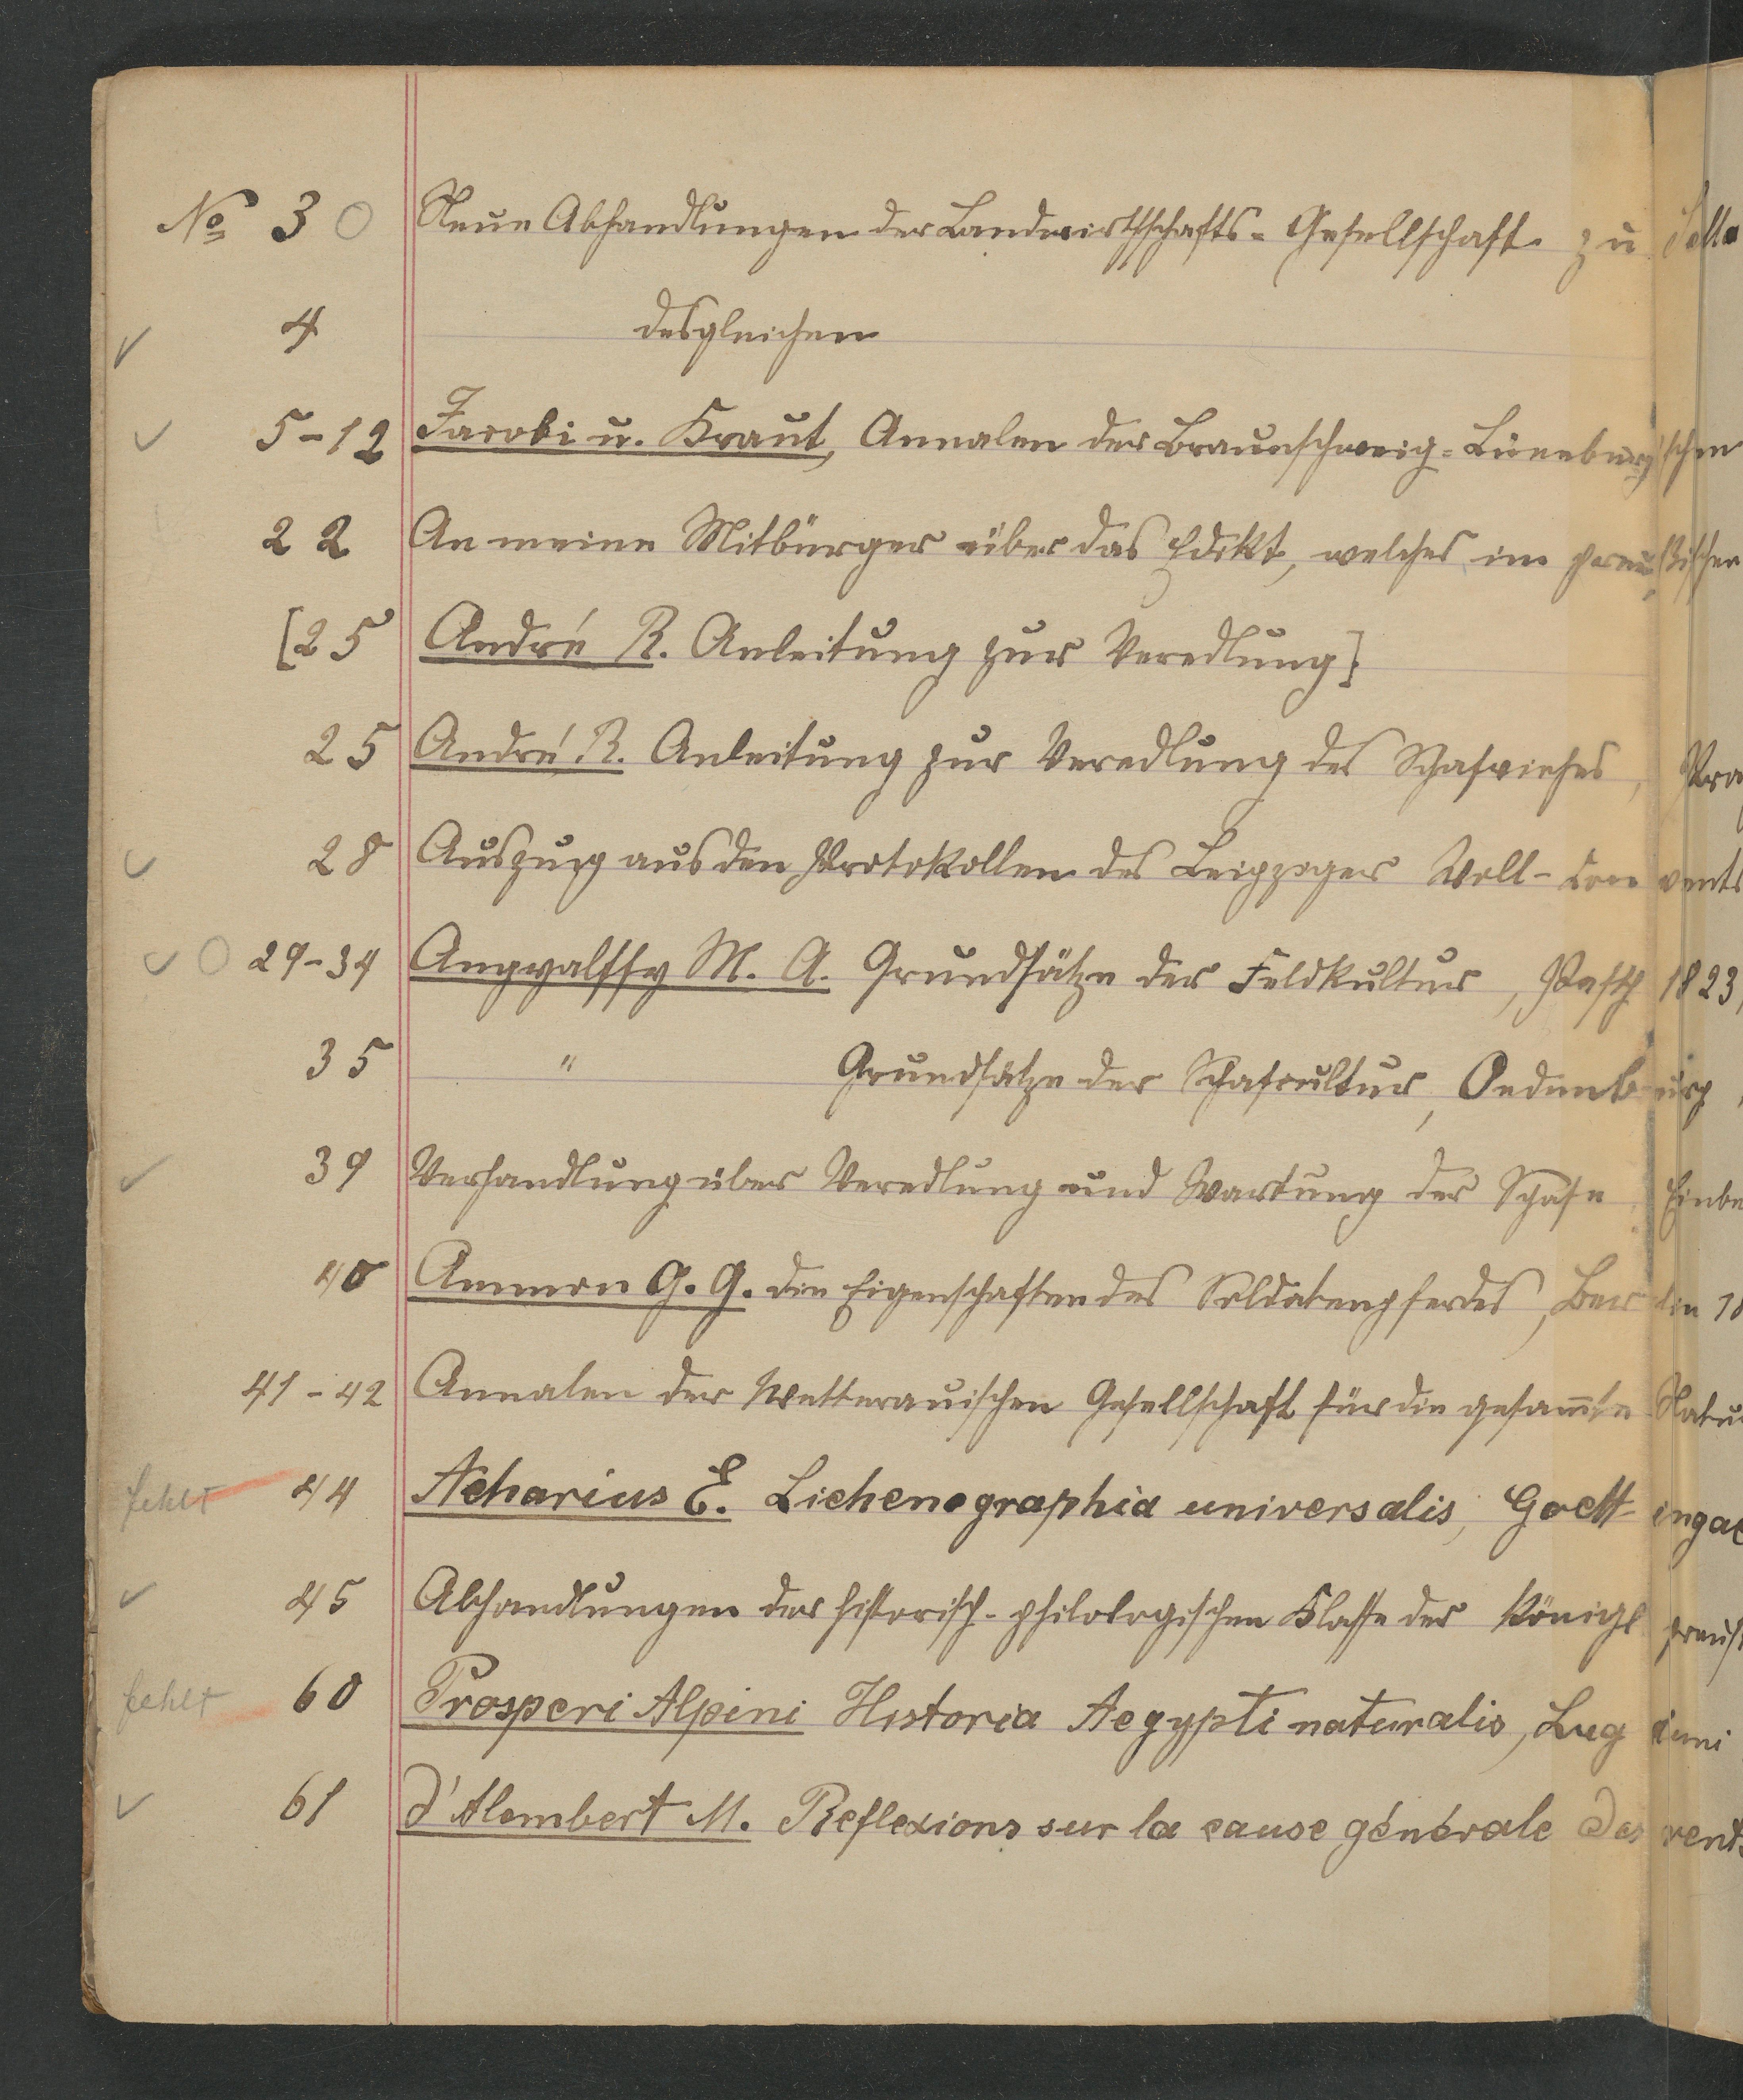 № 3 O Neue Abhandlungen der Landwirthschafts-Gesellschaft zu
✓ 4 desgleichen
✓ 5-12 Jacobi u. Kraut, Annalen der Braunschweig-Lüneburg'schen
22 An meine Mitbürger über das Edikt, welches im preußischen
[25 André R. Anleitung zur Veredlung]
25 André R. Anleitung zur Veredlung des Schafviehes, Pra
✓ 28 Auszug aus den Protokollen des Leipziger Woll-Convents
✓ O 29-34 Angyalffy M. A. Grundsätze der Feldkultur, Pesth 1823,
35 " Grundsätze der Schafcultur, Oedenburg,
✓ 39 Verhandlung über Veredlung und Wartung der Schafe,
40 Ammon G. G. die Eigenschaften des Soldatenpferdes, Berlin 18
41-42 Annalen der Wetterauischen Gesellschaft für die gesam̄te Natur
fehlt 44 Acharius E. Lichenographia universalis, Goettingae
✓ 45 Abhandlungen der historisch-philologischen Klasse der Königl preuß
fehlt 60 Prosperi Alpini Historia Aegypti naturalis, Lugduni
✓ 61 d'Alembert M. Reflexions sur la cause générale des vents